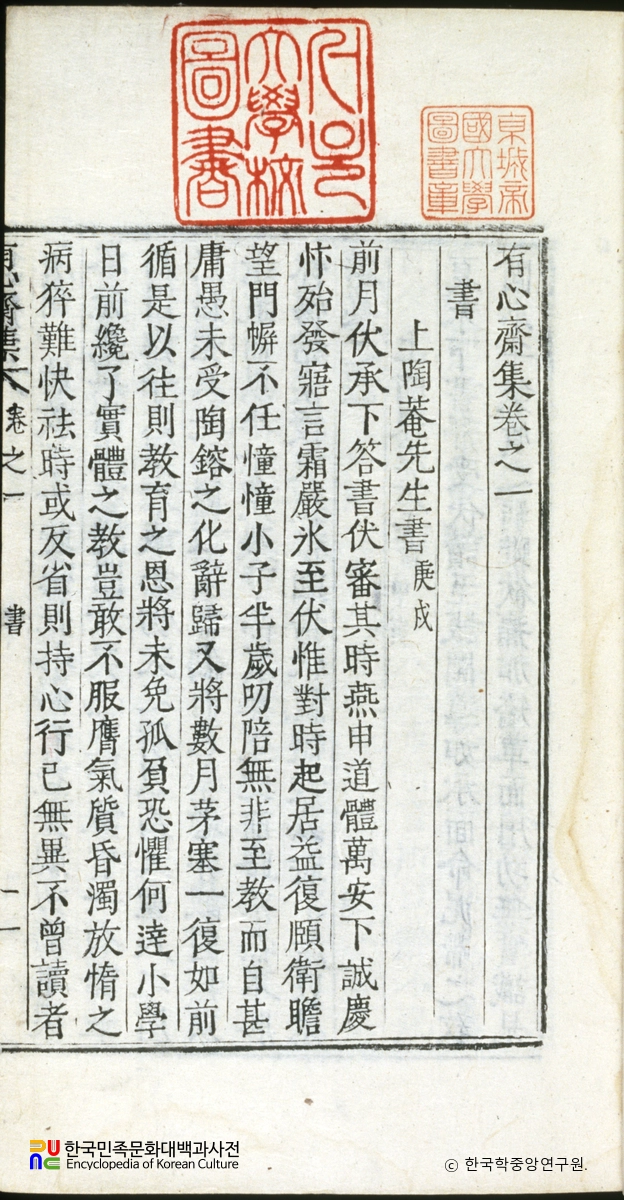 서울大學校圖書
京城帝國大學圖書章
有心齋集卷之一
書
上陶菴先生書 庚戌
前月伏承下答書伏審其時燕申道體萬安下誠慶
忭殆發寤言霜嚴氷至伏惟對時起居益復頤衛瞻
望門墀不任憧憧小子半歲叨陪無非至教而自甚
庸愚未受陶鎔之化辭歸又將數月茅塞一復如前
循是以往則教育之恩將未免孤負恐懼何達小學
日前纔了實體之教豈敢不服膺氣質昏濁放惰之
病猝難快祛時或反省則持心行己無異不曾讀者
有心齋集 卷之一 書 一
한국민족문화대백과사전
Encyclopedia of Korean Culture
© 한국학중앙연구원.